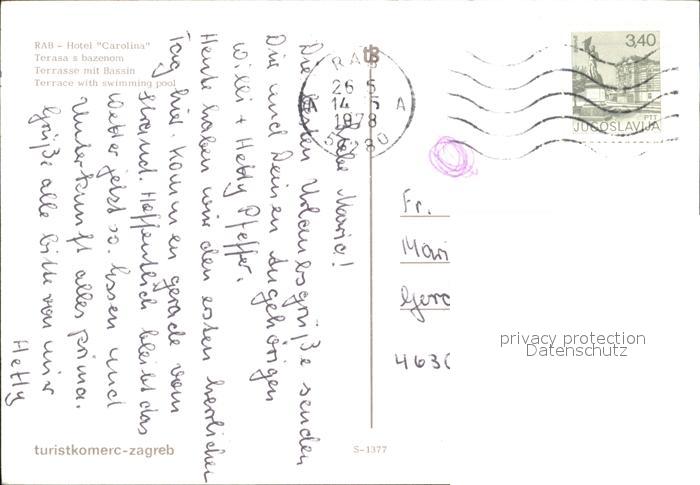 RAB - Hotel "Carolina"
Terasa s bazenom
Terrasse mit Bassin
Terrace with swimming pool
tb
RAB
26 5
A 14 - 5 A
1978
51280
3,40
PTT
JUGOSLAVIJA
Liebe Maria!
Die besten Urlaubsgrüße senden
Dir und Deinen Angehörigen
Willi + Hetty Pfeffer.
Heute haben wir den ersten herrlichen
Tag hier. Kommen gerade vom
Strand. Hoffentlich bleibt das
Wetter jetzt so. Essen und
Unterkunft alles prima.
Grüße alle bitte von mir
Hetty
Fr.
Mari
Gerc
privacy protection
Datenschutz
463
turistkomerc-zagreb
S-1377